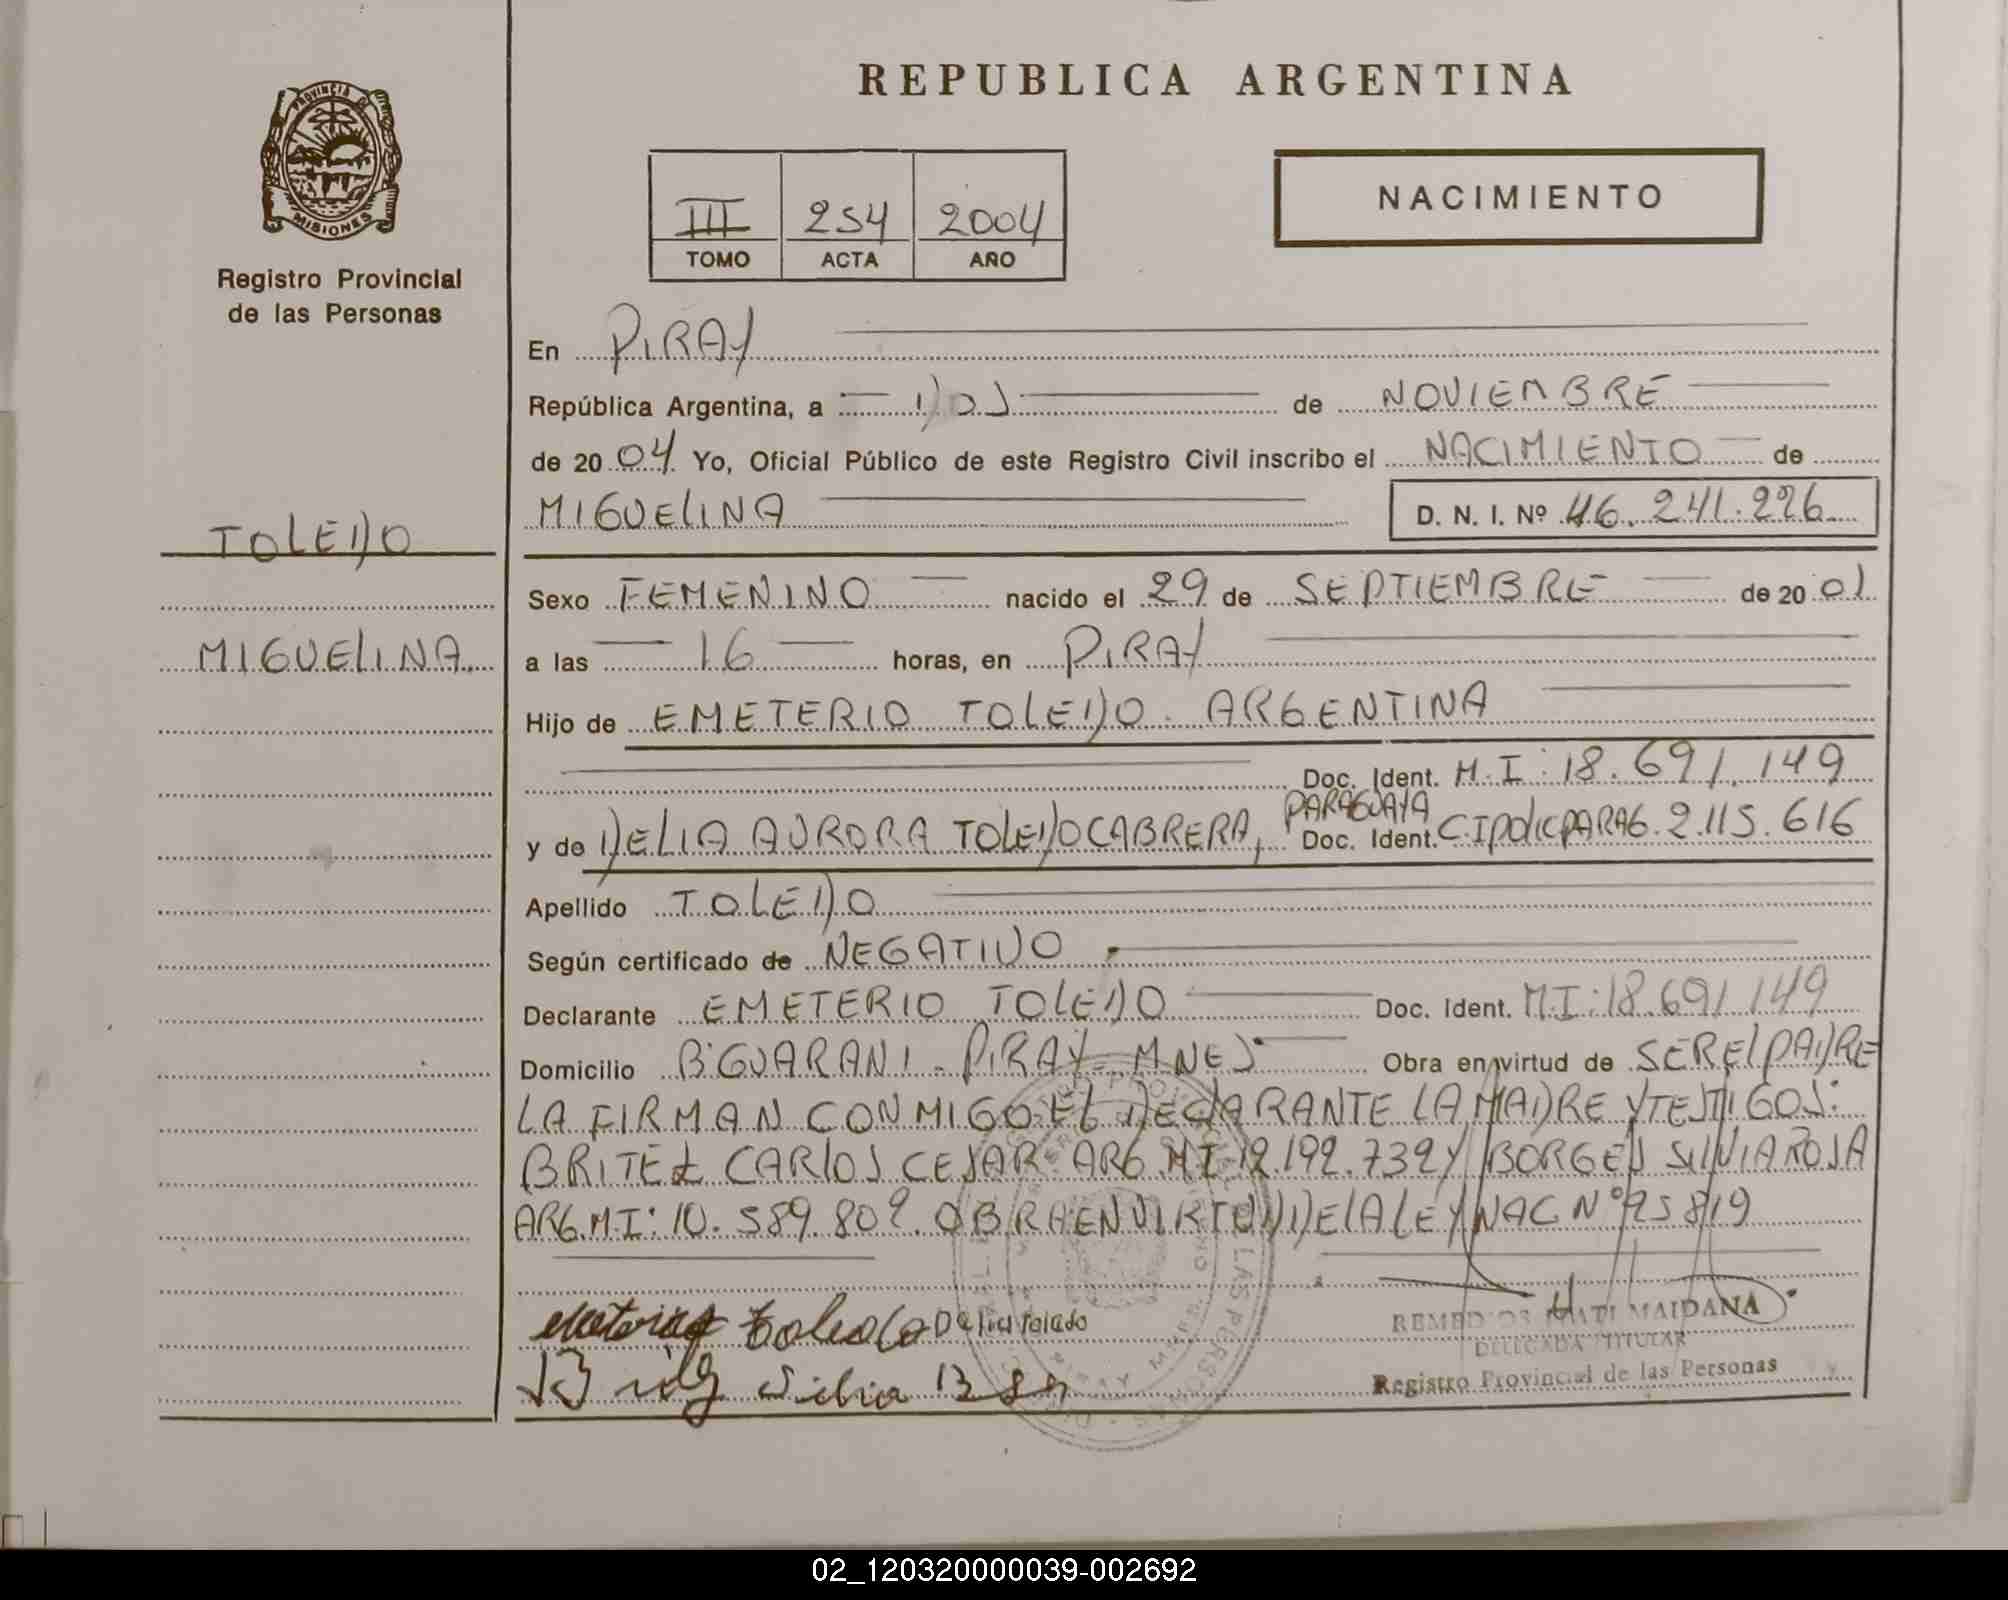 REPUBLICA ARGENTINA
PROVINCIA DE
MISIONES
Registro Provincial
de las Personas
III 254 2004
TOMO ACTA AÑO
NACIMIENTO
En PIRAY
República Argentina, a DOS de NOVIEMBRE
de 2004 Yo, Oficial Público de este Registro Civil inscribo el NACIMIENTO de
MIGUELINA D. N. I. Nº 46.241.226
TOLEDO
Sexo FEMENINO nacido el 29 de SEPTIEMBRE de 2001
MIGUELINA
a las 16 horas, en PIRAY
Hijo de EMETERIO TOLEDO. ARGENTINA
Doc. Ident. M.I: 18.691.149
PARAGUAYA
y de DELIA AURORA TOLEDO CABRERA, Doc. Ident. C.I POLIC PARAG. 2.115.616
Apellido TOLEDO
Según certificado de NEGATIVO
Declarante EMETERIO TOLEDO Doc. Ident. M.I: 18.691.149
Domicilio Bº GUARANI - PIRAY - MNES Obra en virtud de SER EL PADRE
LA FIRMAN CONMIGO EL DECLARANTE LA MADRE Y TESTIGOS:
BRITEZ CARLOS CESAR ARG MI 12.192.732 Y BORGES SILVIA ROSA
ARG.M.I: 10.589.802. OBRA EN VIRTUD DE LA LEY NAC Nº 25819
Toledo Delia Toledo
Silvia
REMEDIOS NATI MAIDANA
DELEGADA TITULAR
Registro Provincial de las Personas
02_120320000039-002692